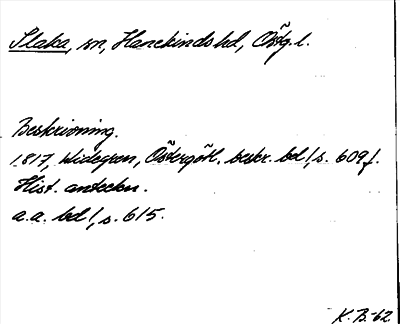 Slaka, sn, Hanekinds hd, Östg. l.
Beskrivning.
1817, Widegren, Östergötl. beskr. bd 1, s. 609 f.
Hist. anteckn.
a.a. bd 1, s. 615.
K.B.-62